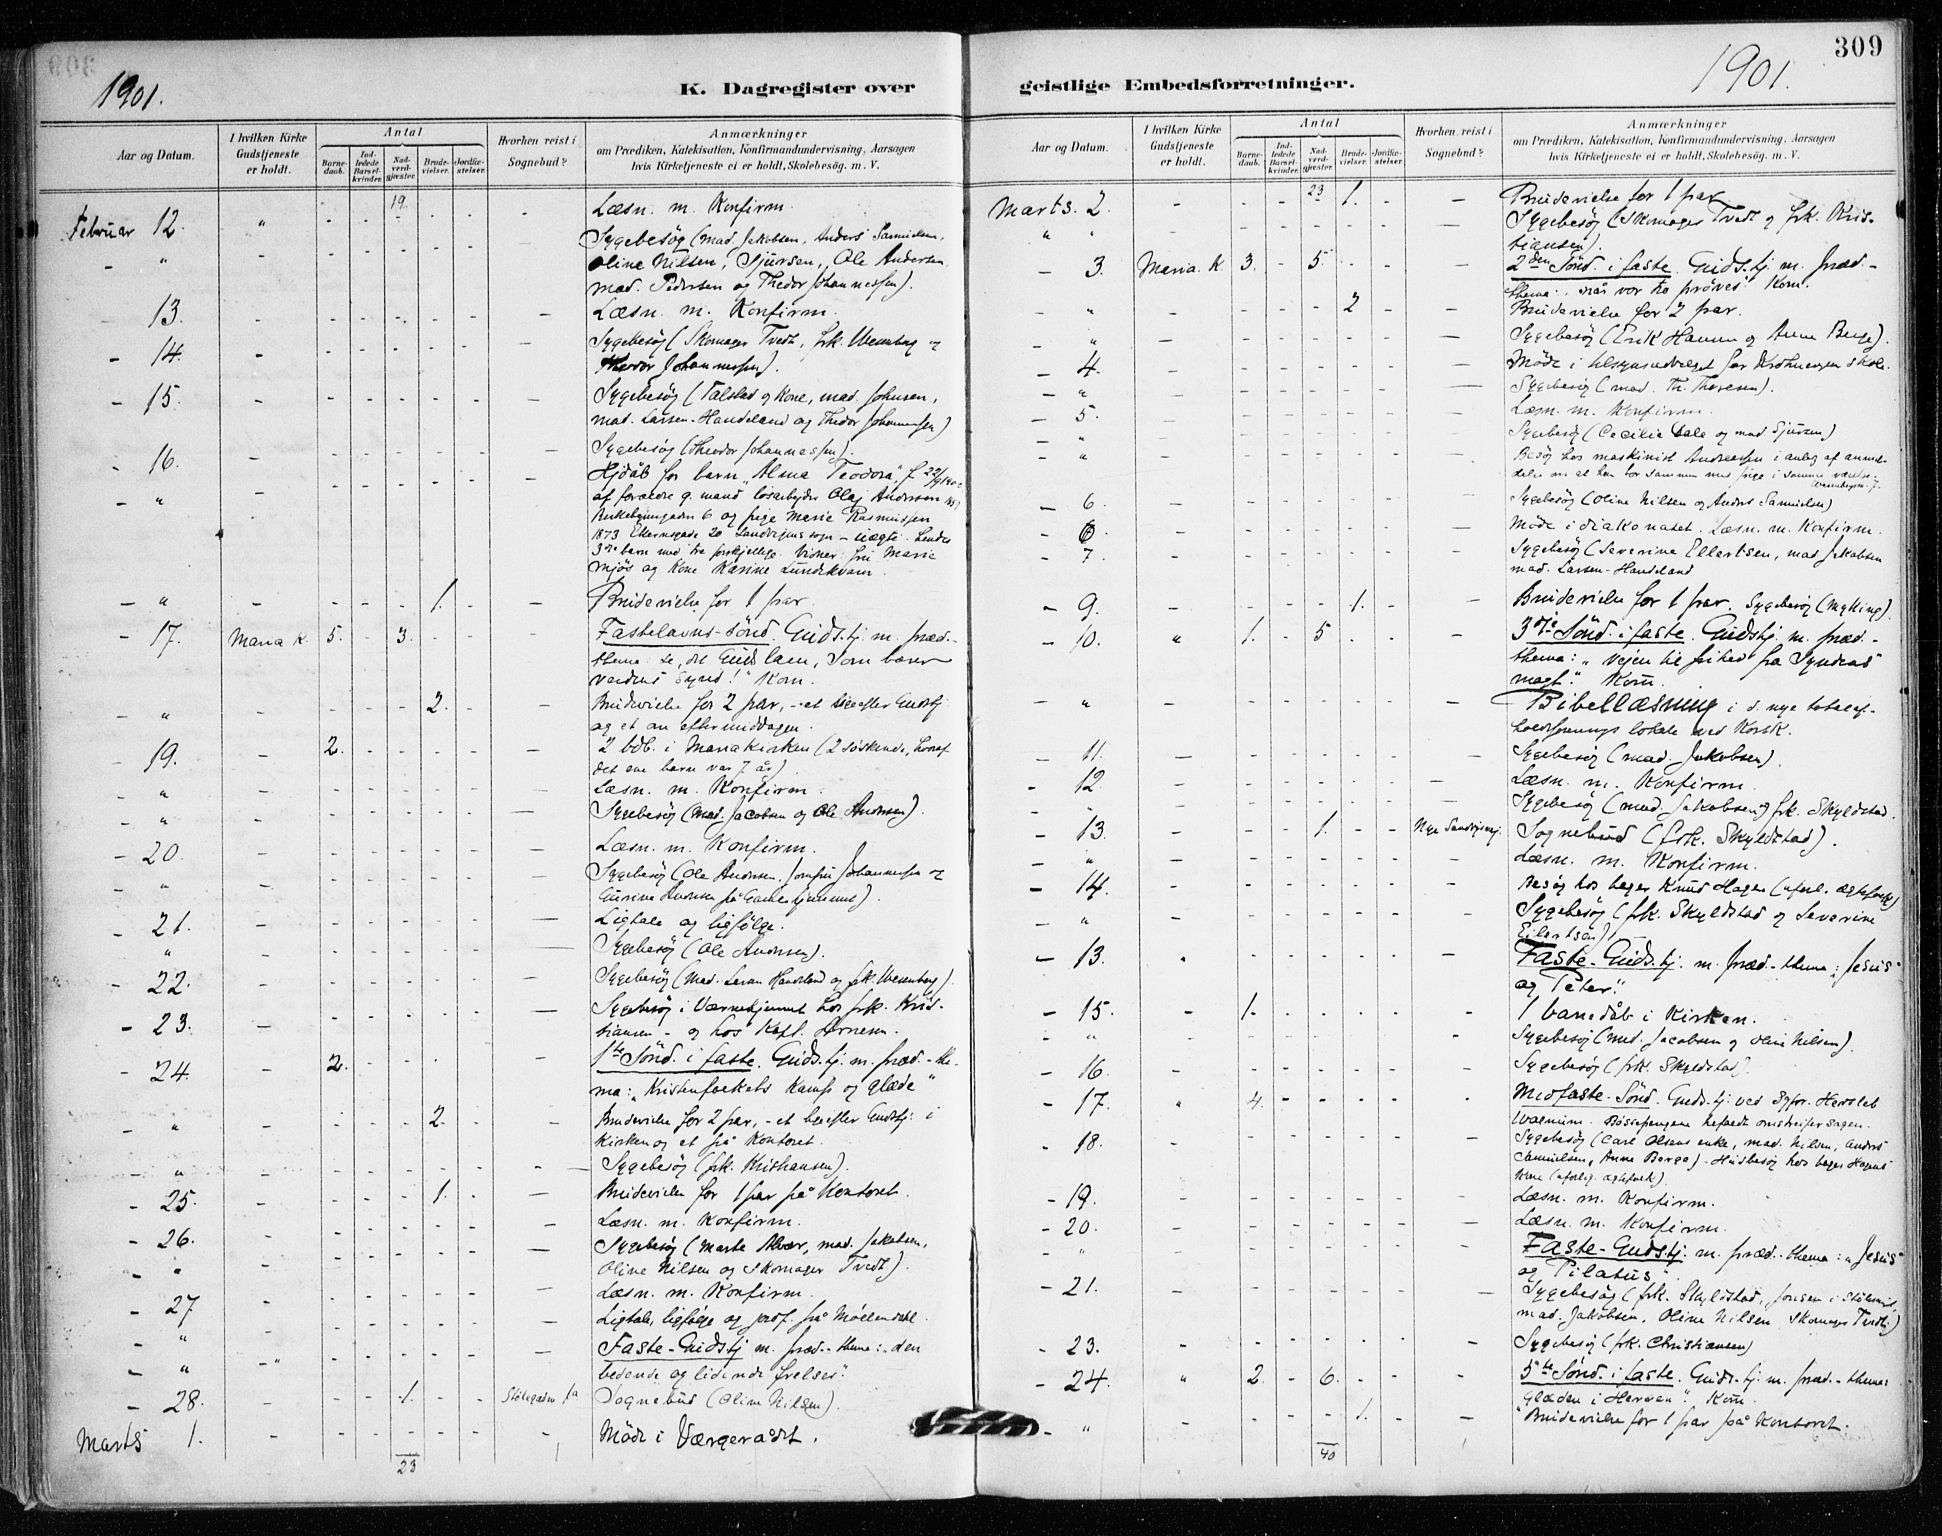 309
1901.
K. Dagregister over
geistlige Embedsforretninger.
1901.
Aar og Datum.
I hvilken Kirke Gudstjeneste er holdt.
Antal
Barnedaab.
Indledede Barselkvinder.
Nadverdgjæster.
Brudevielser.
Jordfæstelser.
Hvorhen reist i Sognebud?
Anmærkninger
om Prædiken, Katekisation, Konfirmandundervisning, Aarsagen
hvis Kirketjeneste ei er holdt, Skolebesøg. m. V.
19.
Februar 12. " Læsn. m. Konfirm.
" Sygebesøg (mad. Jakobsen, Anders Samuelsen,
Oline Nilsen, Sjursen, Ole Andersen,
mad. Pedersen og Thedor Johannessen).
13. Læsn. m. Konfirm.
14. Sygebesøg (Skomager Tvedt, frk. Wesenberg og
Thedor Johannessen).
15. Sygebesøg (Talstad og Kone, mad. Johnsen,
mad. Larsen-Handeland og Thedor Johannessen)
16. Sygebesøg (Theodor Johannessen).
" Hjdåb for barn "Alma Teodora", f. 22/9 1900
af forældre g. mand løsarbejder Olaj Andersen
6 og pige Marie Rasmussen
1873 20 Sandvigens sogn - uægte.
3die barn med tre forskjellige. Vidner: fru Marie
Mjøs og Kone Karine Lundekvam.
" 1. Brudevielse for 1 par.
17. Maria K. 5. 3. Fastelavns-sønd. Gudstj. m. præd.-
thema: Se, det Guds lam, som bærer
verdens synd!" Kom.
" 2. Brudevielse for 2 par, - et Gudstj.
og et om eftermiddagen.
19. 2. 2 bdb. i Mariakirken (2 søskende, hvoraf
det ene barn var 7 år)
" Læsn. m. Konfirm.
" Sygebesøg (Mad. Jacobsen og Ole Andersen).
20. Læsn. m. Konfirm.
" Sygebesøg (Ole Andersen, Jomfru Johannessen og
Gurine på Gamlehjemmet).
21. Ligtale og ligfølge.
" Sygebesøg (Ole Andersen).
22. Sygebesøg (Mad. Larsen Handeland og frk. Wesenberg).
23. Sygebesøg i Værnehjemmet hos frk. Kris-
tiansen - og hos Kapt. Arnesen.
24. 2. 1ste Sønd. i faste. Gudstj. m. præd.-the-
ma: "Kristenfolkets Kamp og glæde"
" 2. Brudevielse for 2 par, - et efter Gudstj. i
Kirken og et på Kontoret.
" Sygebesøg (frk. Kristiansen).
25. 1. Brudevielse for 1 par på Kontoret.
Læsn. m. Konfirm.
26. Sygebesøg (Marte Alvær, mad. Jakobsen,
Oline Nilsen og Skomager Tvedt).
" Læsn. m. Konfirm.
27 Ligtale, ligfølge og jordf. på Møllendahl.
" Faste-Gudstj m. præd.-thema: "den
bedende og lidende frelser."
28. 1. Stølegaden 1a Sognebud (Oline Nilsen).
Marts 1. Møde i Værgerådet.
23
Aar og Datum.
I hvilken Kirke Gudstjeneste er holdt.
Antal
Barnedaab.
Indledede Barselkvinder.
Nadverdgjæster.
Brudevielser.
Jordfæstelser.
Hvorhen reist i Sognebud?
Anmærkninger
om Prædiken, Katekisation, Konfirmandundervisning, Aarsagen
hvis Kirketjeneste ei er holdt, Skolebesøg. m. V.
23
Marts. 2. 1. Brudevielse for 1 par.
" " Sygebesøg (Skomager Tvedt og frk. Kris-
tiansen).
3. Maria K. 3. 5. 2den Sønd. i faste. Gudstj. m. præd.-
thema: når vor tro prøves". Kom.
" 2 Brudevielse for 2 par.
" Sygebesøg (Erik Hansen og Anne Berge).
4. Møde i tilsynsudvalget for skole.
" Sygebesøg (mad. Th. Thoresen).
5. Læsn. m. Konfirm.
" Sygebesøg (Cecilie Dale og mad Sjursen)
" Besøg hos maskinist Andreassen i anleg af anmel-
delse om at han bor sammen med pige i samme værelse
6. Sygebesøg (Oline Nilsen og Anders Samuelsen)
6 Møde i diakonatet. Læsn. m. Konfirm.
7. Sygebesøg (Severine Ellertsen, mad Jakobsen
mad. Larsen-Handeland
9. 1. Brudevielse for 1 par. Sygebesøg (Myking).
10. " 1. 5. 3die Sønd. i faste. Gudstj. m. præd.-
thema: "Vejen til frihed fra Syndens
magt." Kom.
" Bibellæsning i d. nye totalaf-
holdsforenings lokale ved Korsk.
11. Sygebesøg (mad. Jakobsen).
12 Læsn. m. Konfirm.
" Sygebesøg (mad. Jakobsen og frk. Skyldstad.
13. 1. Nye Sandvigsvej. Sognebud (frk. Skyldstad).
" Læsn. m. Konfirm.
14. Besøg hos bager Knud Hagen (uforl. ægtefolk)
" Sygebesøg (frk. Skyldstad og Severine
Eilertsen)
13. " Faste-Gudstj. m. præd.-thema: Jesus
og Peter."
15. 1. 1 barnedåb i Kirken.
" Sygebesøg (mad. Jacobsen og Oline Nilsen).
16. Sygebesøg (frk. Skyldstad).
17. " 4. Midfaste-Sønd. Gudstj. ved Sgpr. Hersleb
Walnum.
18. Sygebesøg (Carl Olsens enke, mad. Nilsen, Anders
Samuelsen, Anne Berge) - Husbesøg hos bager Hagens
Kone (uforlig. ægtefolk).
19. Læsn. m. Konfirm.
20. Læsn. m. Konfirm.
" Faste-Gudstj. m. præd.-thema: "Jesus
og Pilatus".
21. Sygebesøg (frk. Skyldstad,
mad. Jakobsen, Oline Nilsen Skomager Tvedt)
23. Sygebesøg (frk. Christiansen)
24. " 2. 6. 5te Sønd. i faste. Gudstj. m. præd.-thema:
Glæden i Herren". Kom.
" 1. Brudevielse for 1 par på Kontoret.
40